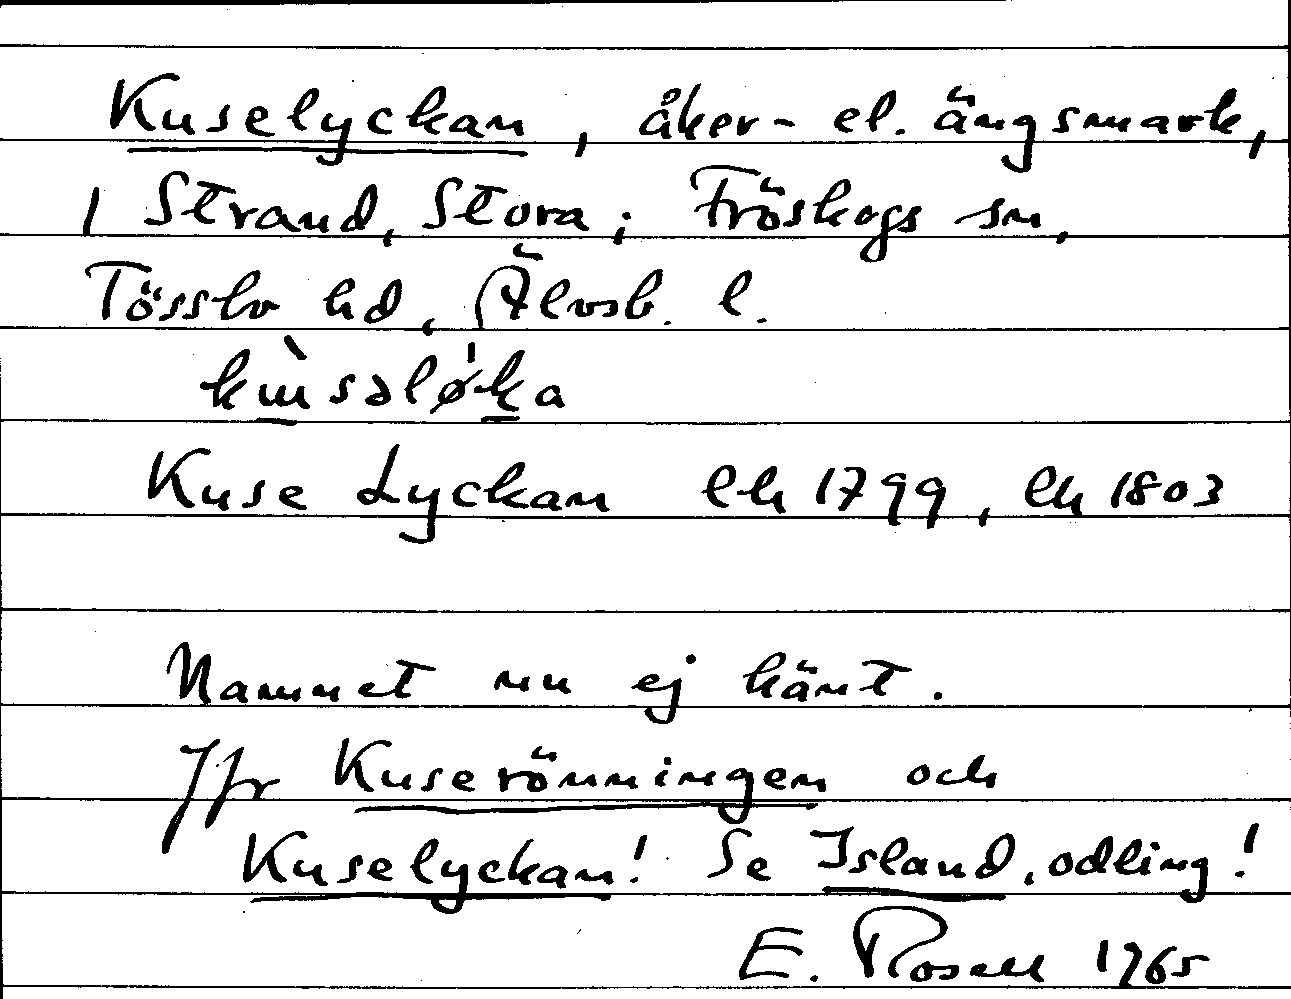 Kuselyckan, åker- el. ängsmark,
i Strand, Stora; Fröskogs sn,
Tössbo hd, Älvsb. l.
Kuse Lyckan lh 1799, lh 1803
Namnet nu ej känt.
Jfr Kuserönningen och
Kuselyckan! Se Island, odling!
E. Rosell 1965